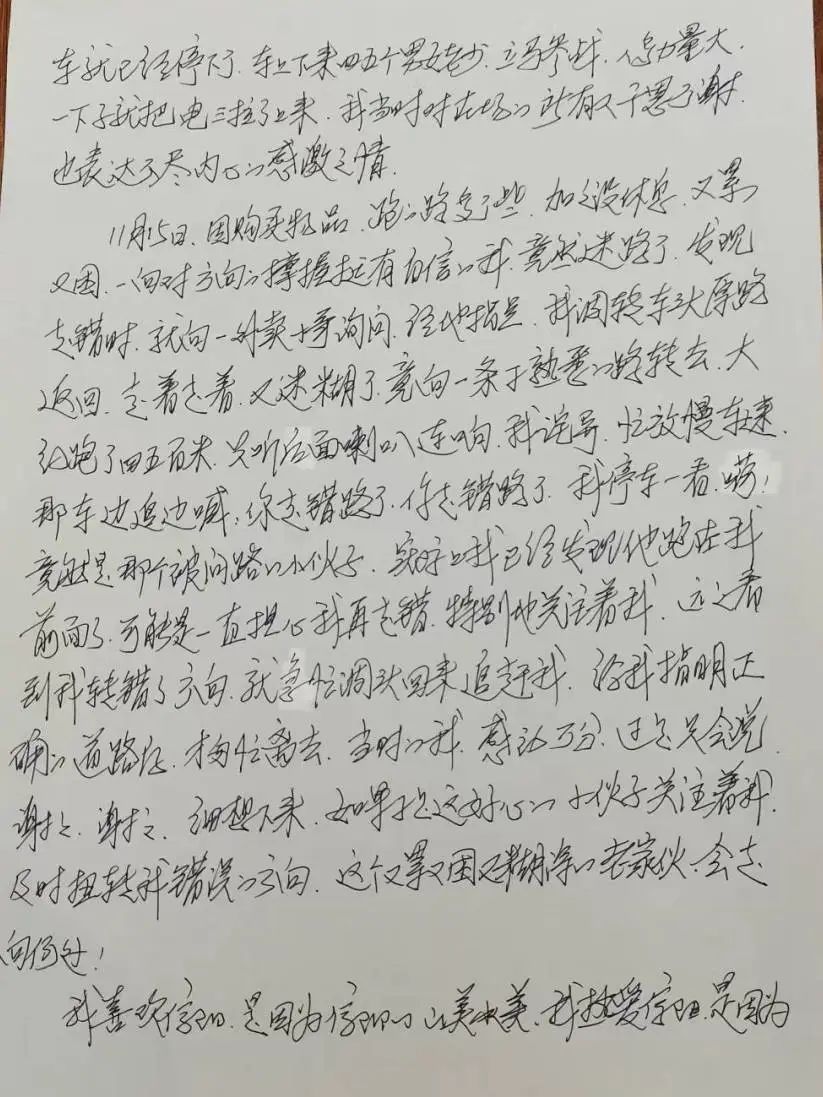 车就已经停下了。车上下来四五个男女老少，立马参战，人多力量大，
一下子就把电三拉了上来，我当时对在场的所有人千恩万谢，
也表达不尽内心的感激之情。
11月15日，因购买物品，跑的路多了些，加之没休息，又累
又困，一向对方向的掌握挺有自信的我，竟然迷路了，发现
走错时，就向一外卖小哥询问，经他指点，我调转车头原路
返回，走着走着，又迷糊了，竟向一条不熟悉的路转去，大
约跑了四五百米，只听后面喇叭连响，我诧异，忙放慢车速，
那车边追边喊，你走错路了，你走错路了，我停车一看，嗬！
竟然是那个被问路的小伙子，实际上我已经发现他跑在我
前面了，可能是一直担心我再走错，特别地关注着我，远远看
到我转错了方向，就急忙调头回来追赶我，给我指明正
确的道路后，才匆忙离去，当时的我，感动万分，过后只会说
谢谢，谢谢，细想下来，如果不是这好心的小伙子关注着我，
及时扭转我错误的方向，这个又累又困又糊涂的老家伙，会走
向何处！
我喜欢信阳，是因为信阳的山美水美，我热爱信阳，是因为